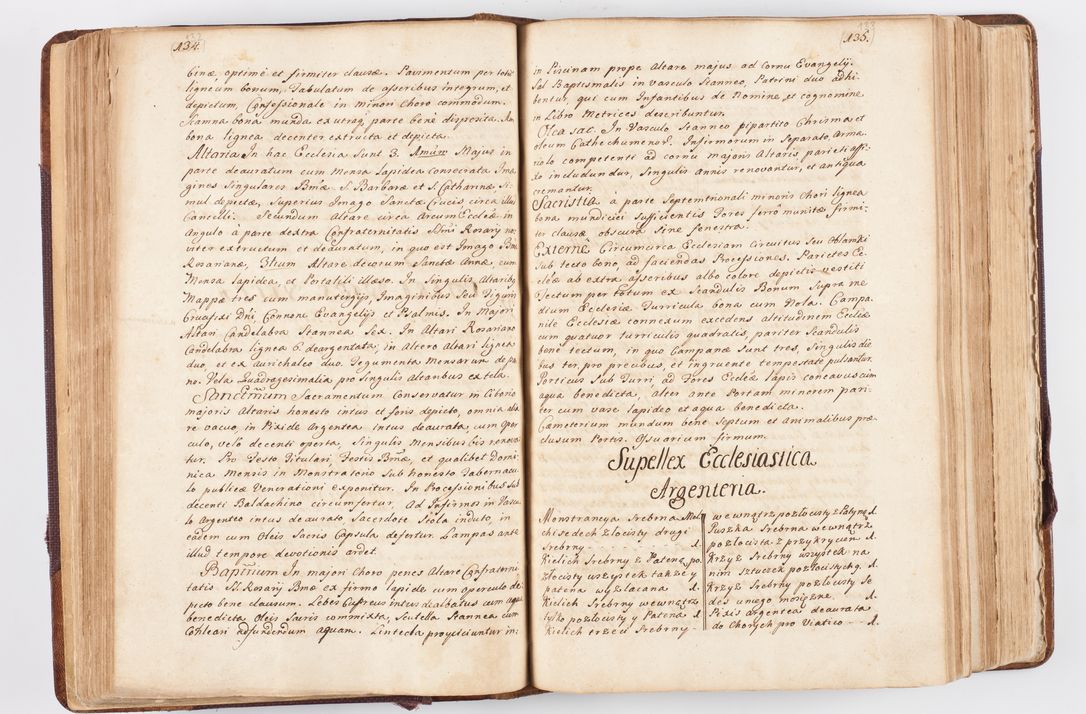 134.
binæ optimè et firmiter clausæ. Pavimentum per totũ
ligneum bonum, Tabulatum de asseribus integrum, et
depictum, Confessionale in minori Choro commodum.
Scamna bona munda ex utraq; parte benè disposita.
bona lignea decenter extructa et depicta.
Altaria In hac Ecclesia Sunt 3. Majus in
parte deauratum cum Mensa lapidea Consecrata Ima
gines Singulares Bmæ S. Barbaræ et S. Catharinæ Si-
mul depictæ, Superius Imago Sanctæ Crucis circa
Cancelli. Secundum Altare circa Arcum Ecclæ in
Angulo à parte dextra Confraternitatis Ssmi Rosarij no-
viter extructum et deauratum, in quo est Imago Bmæ
Rosarianæ, 3tium Altare decorum Sanctæ Annæ, cum
Mensa lapidea, et Portatili illæso. In Singulis Altaribq
Mappæ tres cum manutergijs, Imaginibus Seu
Crucifixi Dni, Connona Evangelijs et Psalmis. In Majori
Altari Candelabra Stannea Sex. In Altari Rosariano
Candelabra lignea 6 deargentata, in Altero Altari lignea
duo, et ex aurichalco duo. Tegumenta Mensarum de pa-
no. Vela Quadragesimalia pro Singulis Altaribus ex tela.
Sanctissimum Sacramentum Conservatur in Ciborio
majoris Altaris honesto intus et foris depicto, omnia alia
re vacuo, in Pixide Argentea intus deaurata, cum Oper
culo, velo decenti operta, Singulis Mensibus bis renova
tur. Pro Festo Titulari, Festis Bmæ, et qualibet Domi
nica Mensis in Monstratorio Sub honesto Tabernacu
lo publicæ Venerationi exponitur. In Processionibus Sub
decenti Baldachino circumfertur. Ad Infirmos in Vascu
lo Argenteo intus deaurato, Sacerdote Stola induto, in
eadem cum Oleis Sacris Capsula defertur. Lampas ante
illud tempore devotionis ardet.
Baptisrium In majori Choro penes Altare Confraterni
tatis SS. Rosarij Bmæ ex firmo lapide cum operculo de-
picto bene clausum. Lebes Cupreus intus dealbatus cum aqua
benedicta Oleis Sacris commixta, Scutella Stannea cum
Cohleari ad fundendum aquam. Lintecla proyiciuntur in:
135.
in Piscinam prope Altare majus ad Cornu Evangelij.
Sal Baptismalis in vasculo Stanneo, Patrini duo adhi
bentur, qui cum Infantibus de Nomine, et cognomine
in Libro Metrices describuntur.
Olea sac. In Vasculo Stanneo pipartito Chrisma et
oleum Cathechumenorũ. Infirmorum in Separato, Arma
riolo competenti ad cornu majoris Altaris parieti affi-
xo includundur, Singulis Annis renovantur, et antiqua
cremantur.
Sacristia à parte Septemtrionali minoris Chori lignea
bona mundiciei Sufficientis Fores ferro munitæ firmi-
ter clausæ obscura Sine fenestra.
Externè Circumcirca Ecclesiam Circuitus Seu Oblanki
Sub tecto bono, ad faciendas Processiones. Parietes Ec-
clæ ab extra asseribus albo colore depictis vestiti
Tectum per totum ex Scandulis Bonum Supra me
dium Ecclesiæ Turricula bona cum Nola. Campa-
nile Ecclesiæ connexum excedens altitudinem Ecclæ
cum quatuor turriculis quadratis, pariter Scandulis
bene tectum, in quo Campanæ Sunt tres, Singulis die
bus ter, pro precibus, et ingruente tempestate pulsantur.
Porticus Sub Turri, ad Fores Ecclæ lapis concavus cum
aqua benedicta, alter ante Portam minorem pari-
ter cum vase lapideo et aqua benedicta.
Cæmeterium mundum bene Septum et animalibus præ
clusum Portis. Ossuarium firmum.
Supellex Ecclesiastica
Argenteria.
Monstrancya Srebrna Mel
chisedech złocisty drugi
Srebrny - - - 1.
Kielich Srebrny z Pateną po
złocisty wszystek także y
patena wyzłacana 1.
Kielich Srebrny wewnątrz
tylko pozłocisty y Patena 1.
Kielich trzeci Srebrny -
wewnątrz pozłocisty z Patyną 1.
Puszka Srebrna wewnątrz
pozłocista z przykryciem 1.
Krzyż Srebrny wszystek na
nim sztuczek pozłocistych 9. 1.
Krzyż Srebrny pozłocisty Se
des u niego mosiężne. 1.
Pixis argentea deaurata
do Chorych pro Viatico - - 1.